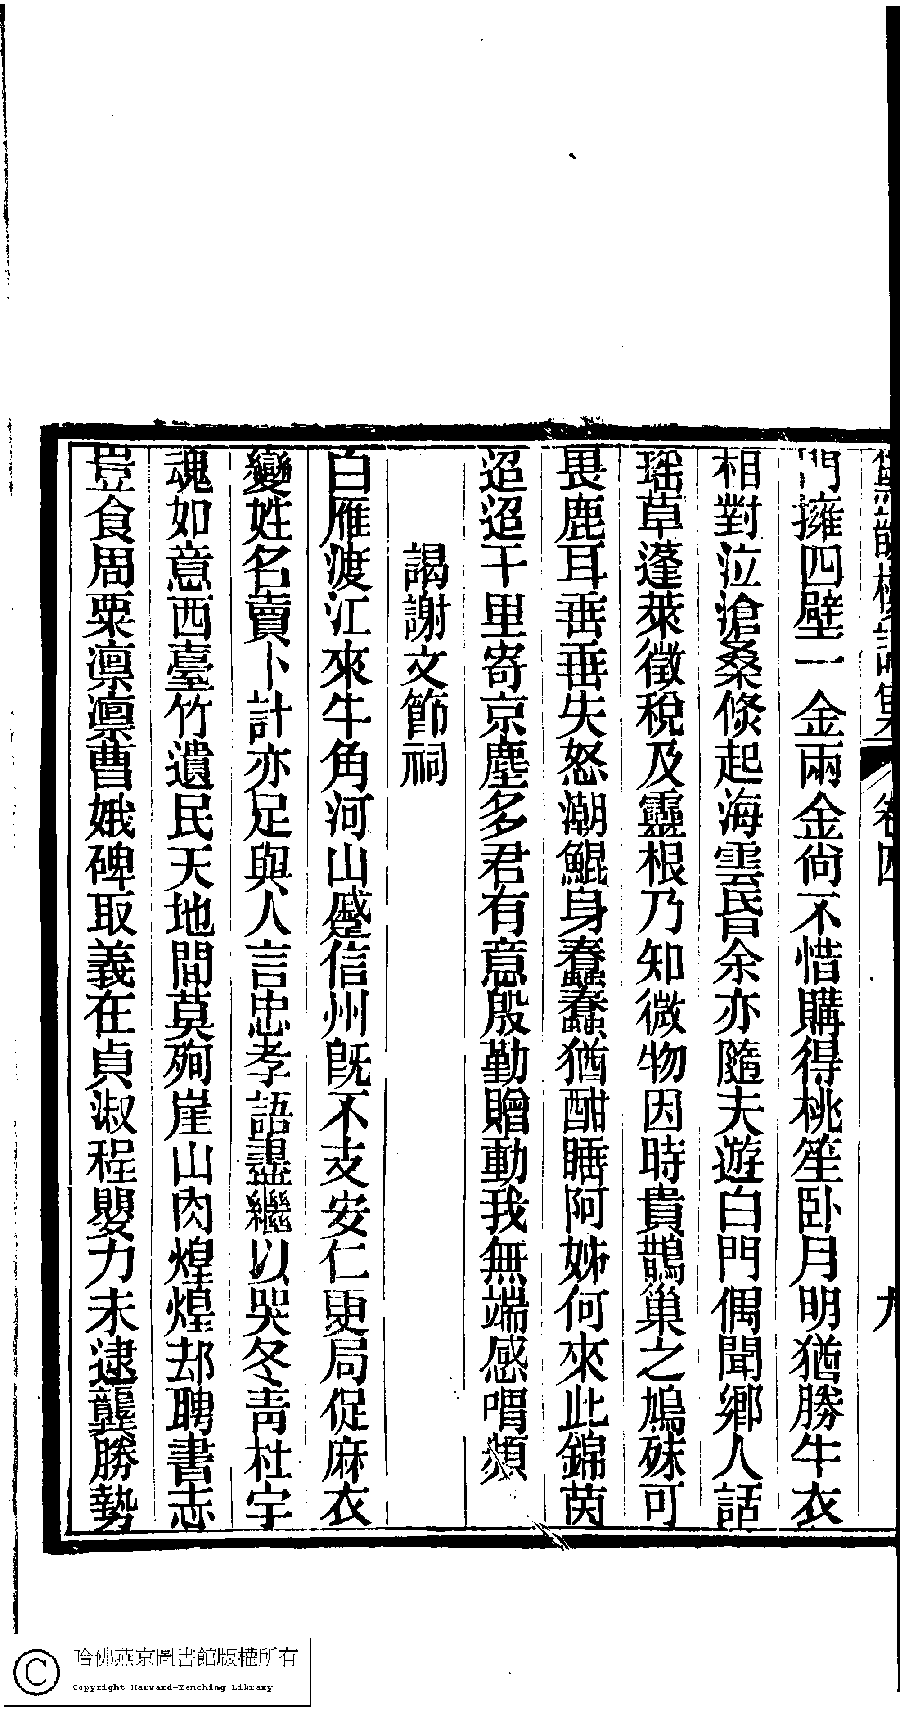 卷四
九
門擁四壁一金兩金尙不惜購得桃笙卧月明猶勝牛衣
相對泣滄桑倐起海雲昏余亦隨夫遊白門偶聞鄉人話
瑶草蓬萊徵稅及靈根乃知微物因時貴鵲巢之鳩殊可
畏鹿耳垂垂失怒潮鯤身蠢蠢猶酣睡阿姊何來此錦茵
迢迢千里寄京塵多君有意殷勤贈動我無端感喟頻
謁謝文節祠
白雁渡江來牛角河山蹙信州旣不支安仁更局促麻衣
變姓名賣卜計亦足與人言忠孝語盡繼以哭冬靑杜宇
魂如意西臺竹遺民天地間莫殉崖山肉煌煌却聘書志
豈食周粟凛凛曹娥碑取義在貞淑程嬰力未逮龔勝勢
哈佛燕京圖書館版權所有
Copyright Harvard-Yenching Library